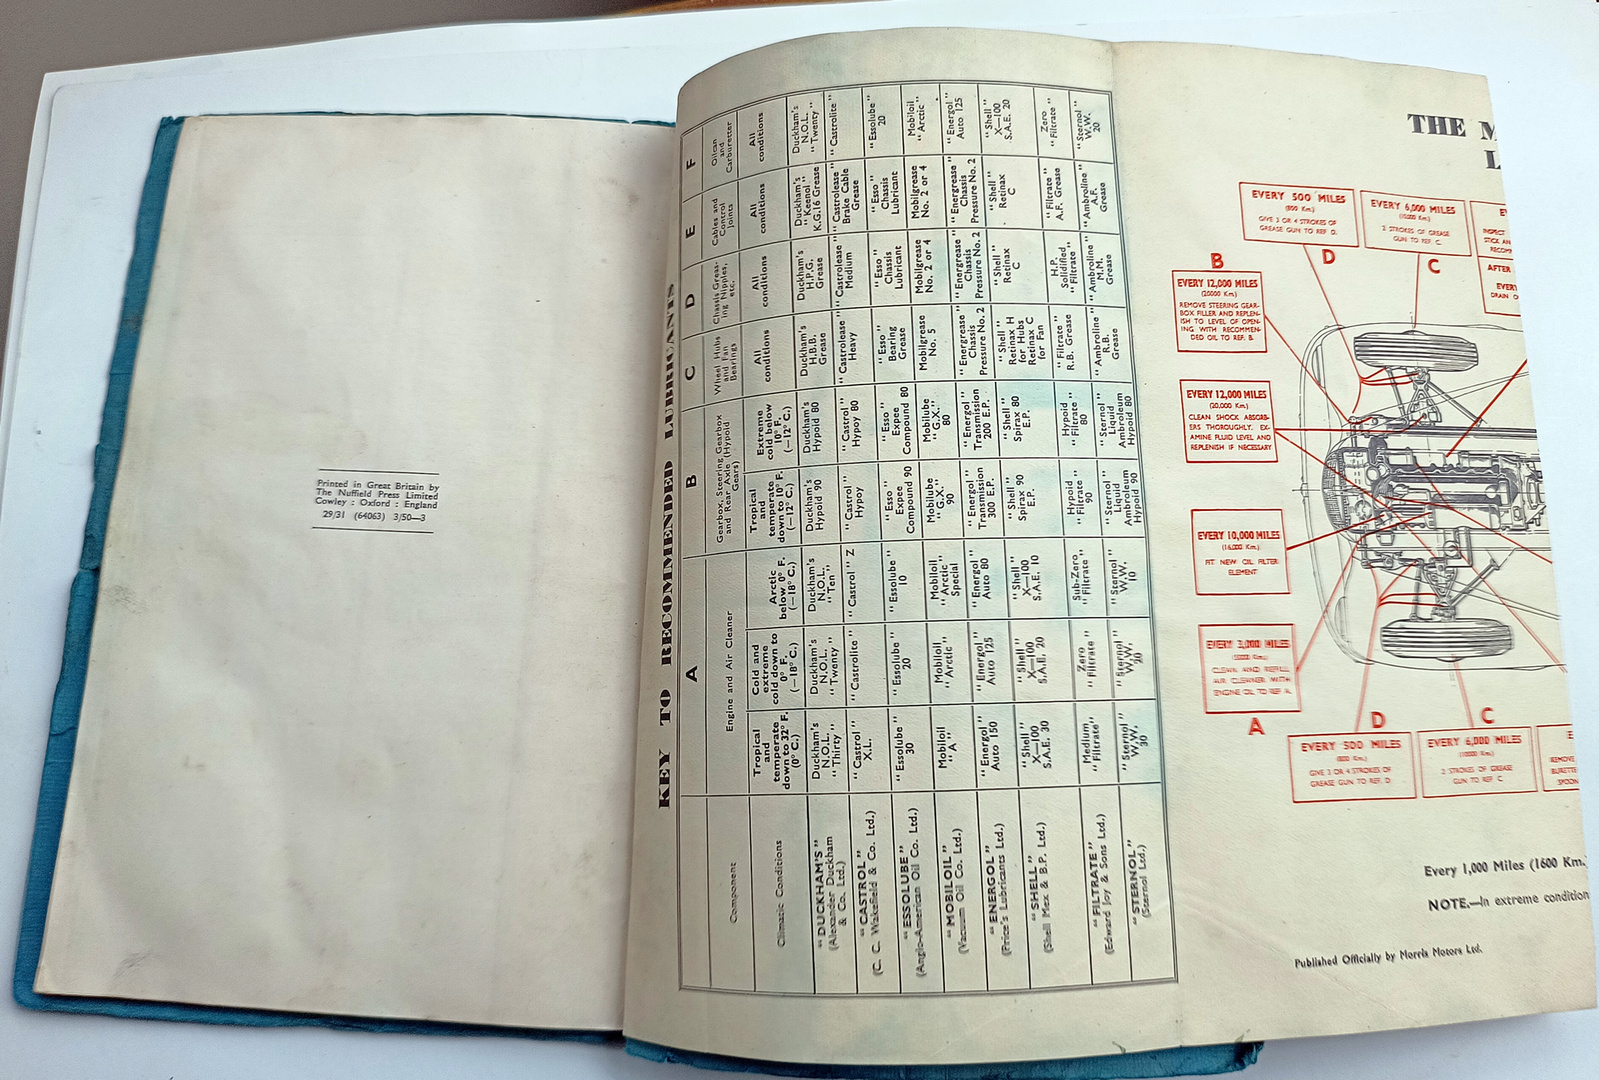 Printed in Great Britain by
The Nuffield Press Limited
Cowley : Oxford : England
29/31 (64063) 3/50—3
KEY TO RECOMMENDED LUBRICANTS
A
B
C
D
E
F
Component
Engine and Air Cleaner
Gearbox, Steering Gearbox
and Rear Axle (Hypoid
Gears)
Wheel Hubs
and Fan
Bearings
Chassis Greas-
ing Nipples,
etc.
Cables and
Control
Joints
Oilcan
and
Carburetter
Climatic Conditions
Tropical
and
temperate
down to 32° F.
(0° C.)
Cold and
extreme
cold down to
0° F.
(—18° C.)
Arctic
below 0° F.
(—18° C.)
Tropical
and
temperate
down to 10° F.
(—12° C.)
Extreme
cold below
10° F.
(—12° C.)
All
conditions
All
conditions
All
conditions
All
conditions
"DUCKHAM'S"
(Alexander Duckham
& Co. Ltd.)
Duckham's
N.O.L.
"Thirty"
Duckham's
N.O.L.
"Twenty"
Duckham's
N.O.L.
"Ten"
Duckham's
Hypoid 90
Duckham's
Hypoid 80
Duckham's
H.B.B.
Grease
Duckham's
H.P.G.
Grease
Duckham's
"Keenol"
K.G.16 Grease
Duckham's
N.O.L.
"Twenty"
"CASTROL"
(C. C. Wakefield & Co. Ltd.)
"Castrol"
X.L.
"Castrolite"
"Castrol" Z
"Castrol"
Hypoy
"Castrol"
Hypoy 80
"Castrolease"
Heavy
"Castrolease"
Medium
"Castrolease"
Brake Cable
Grease
"Castrolite"
"ESSOLUBE"
(Anglo-American Oil Co. Ltd.)
"Essolube"
30
"Essolube"
20
"Essolube"
10
"Esso"
Expee
Compound 90
"Esso"
Expee
Compound 80
"Esso"
Bearing
Grease
"Esso"
Chassis
Lubricant
"Esso"
Chassis
Lubricant
"Essolube"
20
"MOBILOIL"
(Vacuum Oil Co. Ltd.)
Mobiloil
"A"
Mobiloil
"Arctic"
Mobiloil
"Arctic"
Special
Mobilube
"G.X."
90
Mobilube
"G.X."
80
Mobilgrease
No. 5
Mobilgrease
No. 2 or 4
Mobilgrease
No. 2 or 4
Mobiloil
"Arctic"
"ENERGOL"
(Price's Lubricants Ltd.)
"Energol"
Auto 150
"Energol"
Auto 125
"Energol"
Auto 80
"Energol"
Transmission
300 E.P.
"Energol"
Transmission
200 E.P.
"Energrease"
Chassis
Pressure No. 2
"Energrease"
Chassis
Pressure No. 2
"Energrease"
Chassis
Pressure No. 2
"Energol"
Auto 125
"SHELL"
(Shell Mex & B.P. Ltd.)
"Shell"
X—100
S.A.E. 30
"Shell"
X—100
S.A.E. 20
"Shell"
X—100
S.A.E. 10
"Shell"
Spirax 90
E.P.
"Shell"
Spirax 80
E.P.
"Shell"
Retinax H
for Hubs
Retinax C
for Fan
"Shell"
Retinax
C
"Shell"
Retinax
C
"Shell"
X—100
S.A.E. 20
"FILTRATE"
(Edward Joy & Sons Ltd.)
Medium
"Filtrate"
Zero
"Filtrate"
Sub-Zero
"Filtrate"
Hypoid
"Filtrate"
90
Hypoid
"Filtrate"
80
"Filtrate"
R.B. Grease
H.P.
Solidified
"Filtrate"
"Filtrate"
A.F. Grease
Zero
"Filtrate"
"STERNOL"
(Sternol Ltd.)
"Sternol"
W.W.
30
"Sternol"
W.W.
20
"Sternol"
W.W.
10
"Sternol"
Liquid
Ambroleum
Hypoid 90
"Sternol"
Liquid
Ambroleum
Hypoid 80
"Ambroline"
R.B.
Grease
"Ambroline"
M.M.
Grease
"Ambroline"
A.F.
Grease
"Sternol"
W.W.
20
THE M
L
EVERY 500 MILES
(800 Km.)
GIVE 3 OR 4 STROKES OF
GREASE GUN TO REF D.
D
EVERY 6,000 MILES
(10000 Km.)
2 STROKES OF GREASE
GUN TO REF. C.
C
INSPECT
STICK AN
RECOM
AFTER
EVERY
DRAIN O
B
EVERY 12,000 MILES
(20000 Km.)
REMOVE STEERING GEAR-
BOX FILLER AND REPLEN-
ISH TO LEVEL OF OPEN-
ING WITH RECOMMEN-
DED OIL TO REF. B.
EVERY 12,000 MILES
(20,000 Km.)
CLEAN SHOCK ABSORB-
ERS THOROUGHLY. EX-
AMINE FLUID LEVEL AND
REPLENISH IF NECESSARY
EVERY 10,000 MILES
(16,000 Km.)
FIT NEW OIL FILTER
ELEMENT
EVERY 3,000 MILES
(5000 Km.)
CLEAN AND REFILL
AIR CLEANER WITH
ENGINE OIL TO REF A.
A
D
EVERY 500 MILES
(800 Km.)
GIVE 3 OR 4 STROKES OF
GREASE GUN TO REF. D
C
EVERY 6,000 MILES
(10000 Km.)
2 STROKES OF GREASE
GUN TO REF C
E
REMOVE
BURETTE
SPOON
Every 1,000 Miles (1600 Km.
NOTE.—In extreme condition
Published Officially by Morris Motors Ltd.